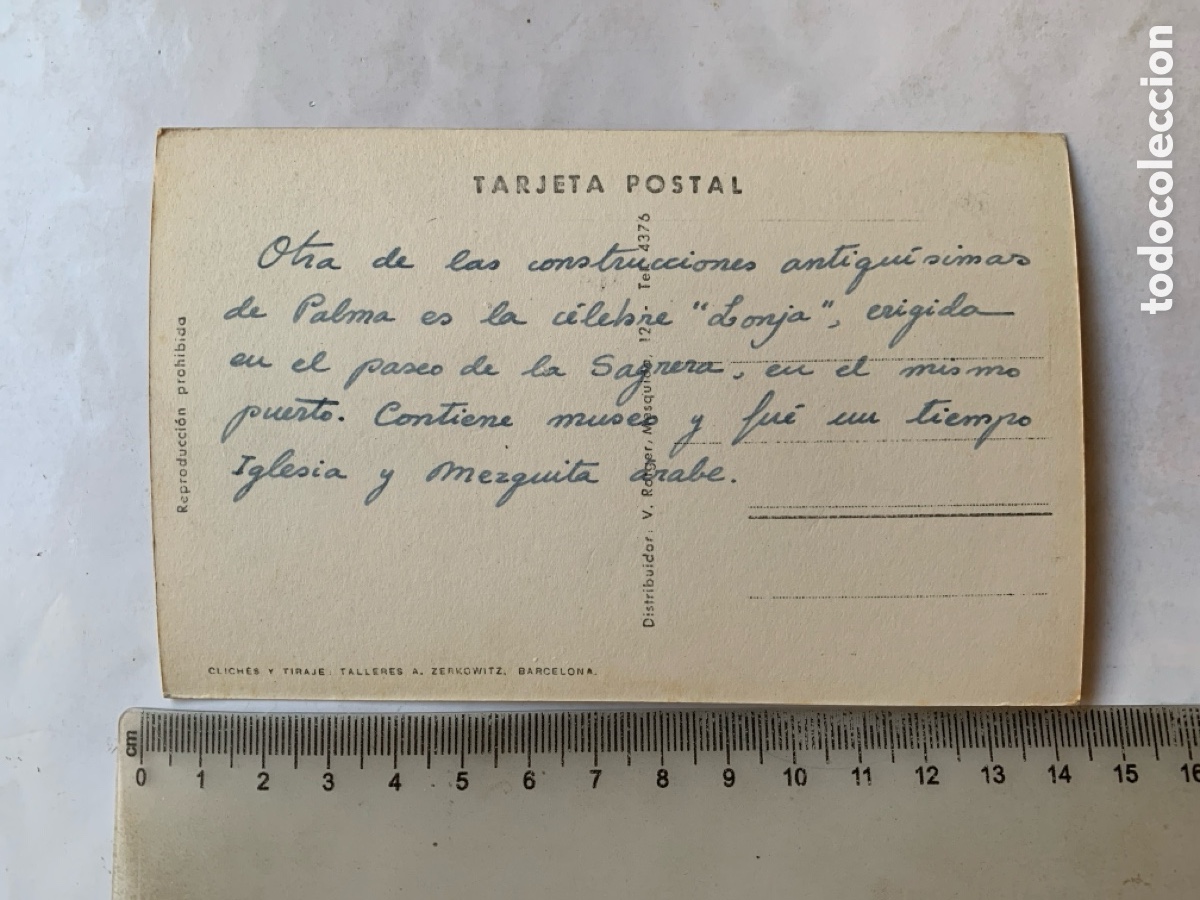 TARJETA POSTAL
Otra de las construcciones antiquísimas
de Palma es la célebre "Lonja", erigida
en el paseo de la Sagrera, en el mismo
puerto. Contiene museo y fué un tiempo
Iglesia y Mezquita árabe.
Reproducción prohibida
Distribuidor: V. 12 - Tel. 4376
CLICHÉS Y TIRAJE: TALLERES A. ZERKOWITZ. BARCELONA.
todocoleccion
cm
0 1 2 3 4 5 6 7 8 9 10 11 12 13 14 15 16